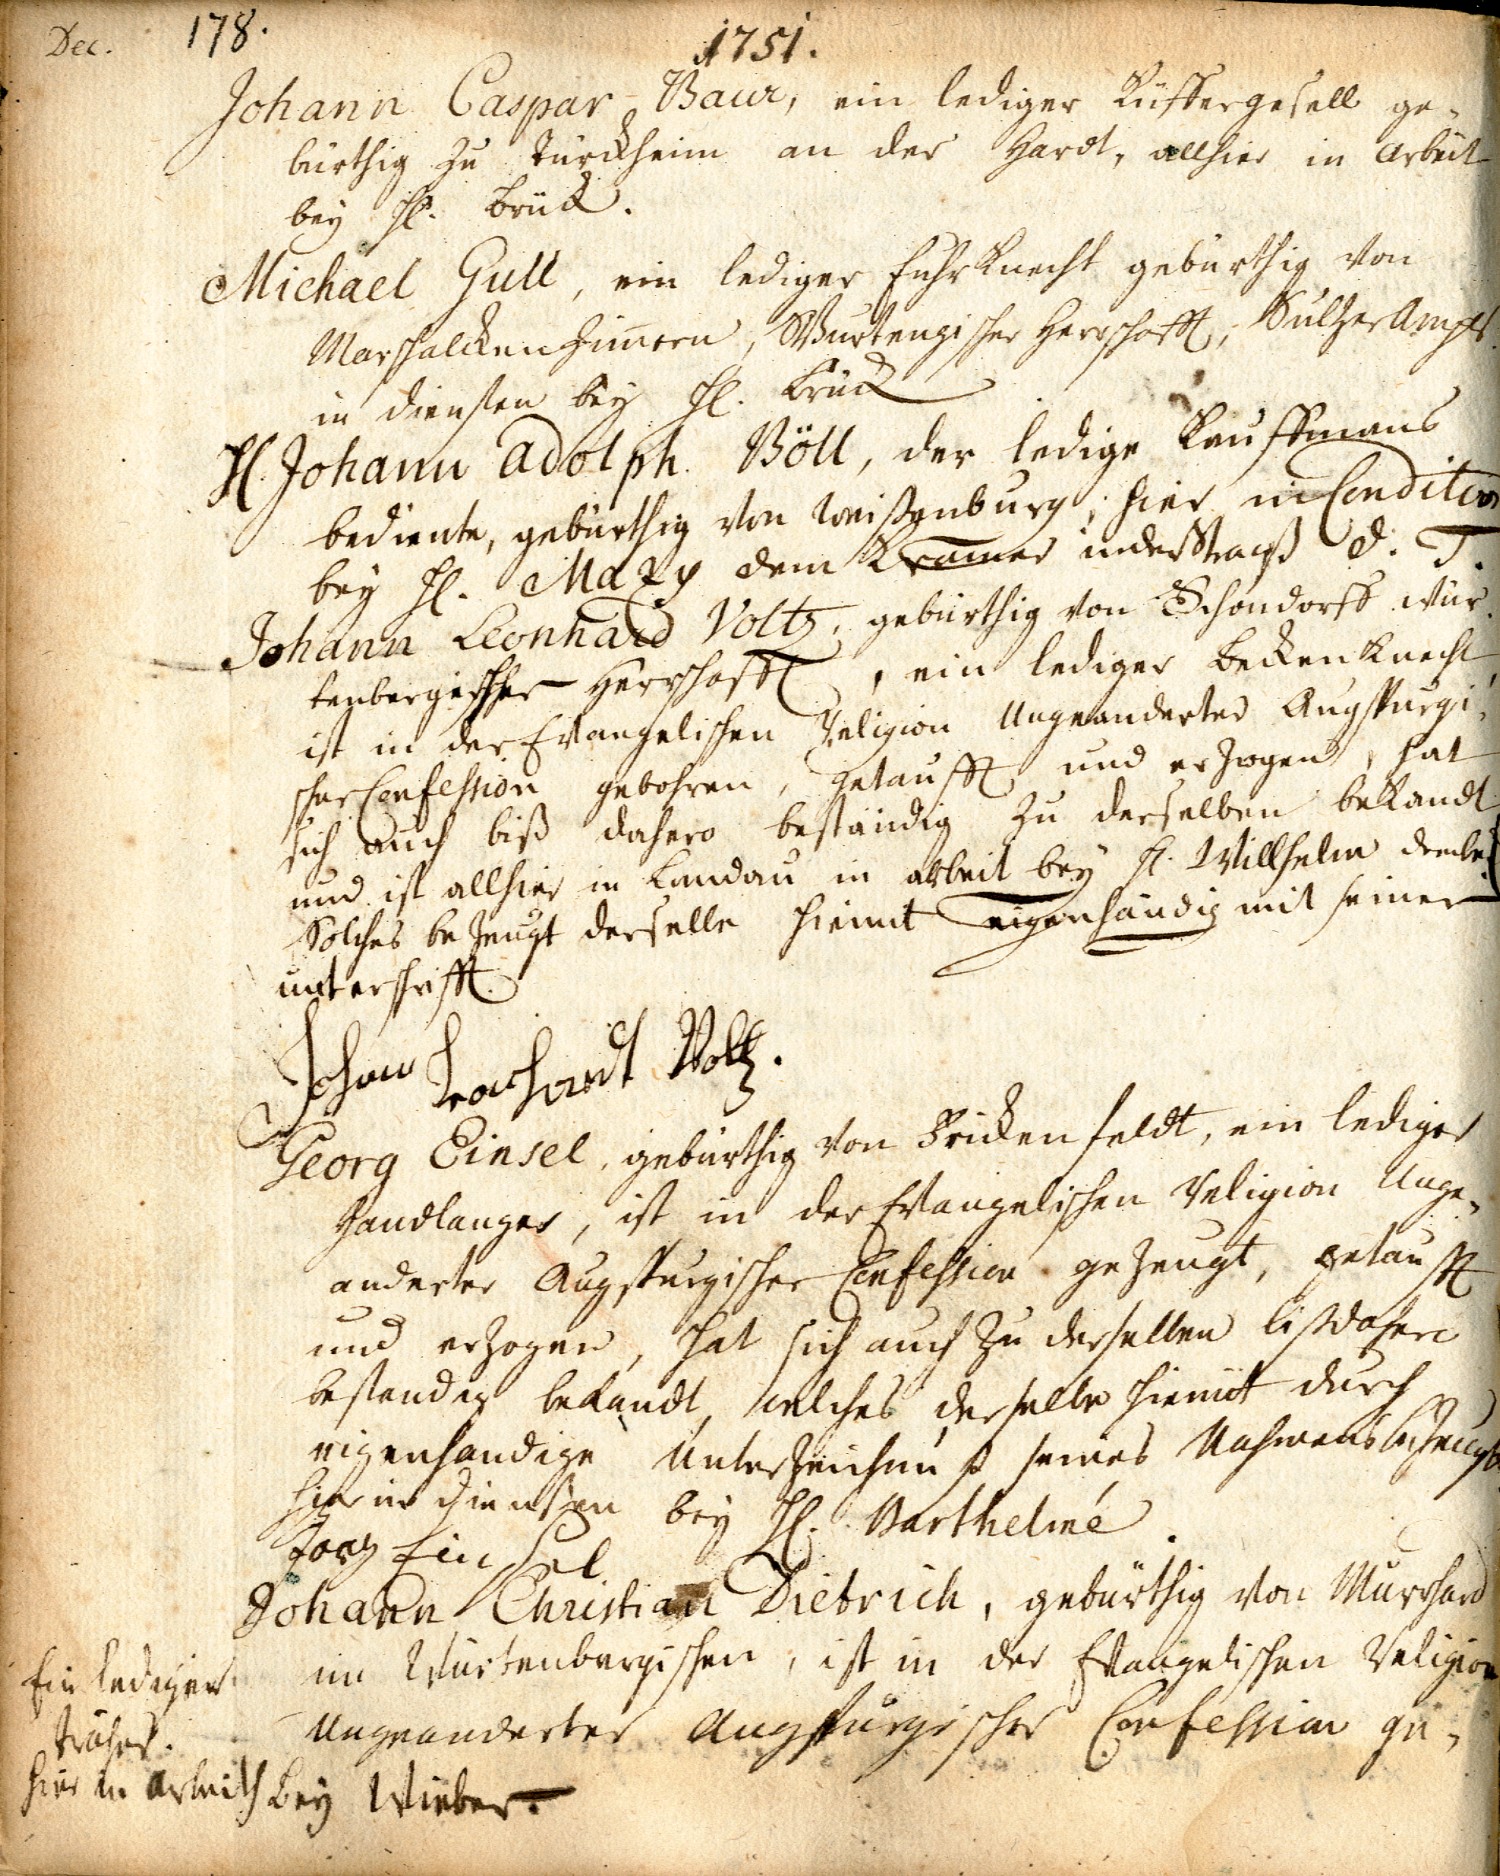 Dec.
178.
1751.
Johann Caspar Baur, ein lediger Küffergesell ge-
bürthig zu Türckheim an der Hardt, allhier in Arbeit
bey H. Brück.
Michael Gull, ein lediger Fuhrknecht gebürthig von
Marschalckenzimmern, Würtengischer Herrschafft, Sultzer Ampts
in diensten bey H. Brück
H. Johann Adolph Böll, der ledige Kauffmans
bediente, gebürthig von Weißenburg, hier in Condition
bey H. Mazy dem Kramer in der Straß d. T.
Johann Leonhard Voltz, gebürthig von Schondorff Wür-
tenbergischer Herrschafft, ein lediger Beckenknecht,
ist in der Evangelischen Religion Ungeanderter Augspurgi-
scher Confession gebohren, getaufft und erzogen, hat
sich auch biß dahero beständig zu derselben bekandt
und ist allhier in Landau in arbeit bey H. Willhelm
Solches bezeugt derselbe hiemit eigenhändig mit seiner
unterschrifft.
Johan Leonhardt Voltz.
Georg Einsel, gebürthig von Frickenfeldt, ein lediger
Handlanger, ist in der Evangelischen Religion Unge-
anderter Augspurgischer Confession gezeugt, getaufft
und erzogen, hat sich auch zu derselben bißdahero
bestendig bekandt, welches derselbe hiemit durch
eigenhandige Unterzeichnuß seines Nahmens bezeugt
hier in Diensten bey H. Barthelmé.
Jorg Einsel
Johann Christian Dietrich, gebürthig von Murrhard
im Würtenbergischen, ist in der Evangelischen Religion
Ungeanderter Augspurgischer Confession ge-
Ein lediger
hier in arbeith bey Wieber.